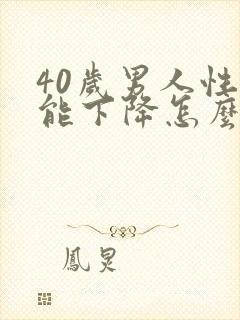 40歲男人性
能下降怎麼
鳳炅